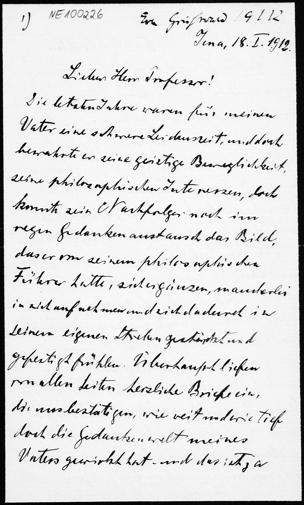 1) NE100226
Eva Grünwald 19112
Jena, 18. I. 1912.
Lieber Herr Professor!
Die letzten Jahre waren für meinen
Vater eine schwere Leidenszeit, und doch
bewahrte er seine geistige Beweglichkeit,
seine philosophischen Interessen, doch
konnte sein Nachfolger noch im
regen Gedankenaustausch das Bild,
das er von seinem philosophischen
Führer hatte, sich ergänzen, mancherlei
in sich aufnehmen und sich dadurch in
seinem eigenen Streben gestärkt und
gefestigt fühlen. Überhaupt liefen
von allen Seiten herzliche Briefe ein,
die uns bestätigen, wie weit und wie tief
doch die Gedankenwelt meines
Vaters gewirkt hat - und das ist ja